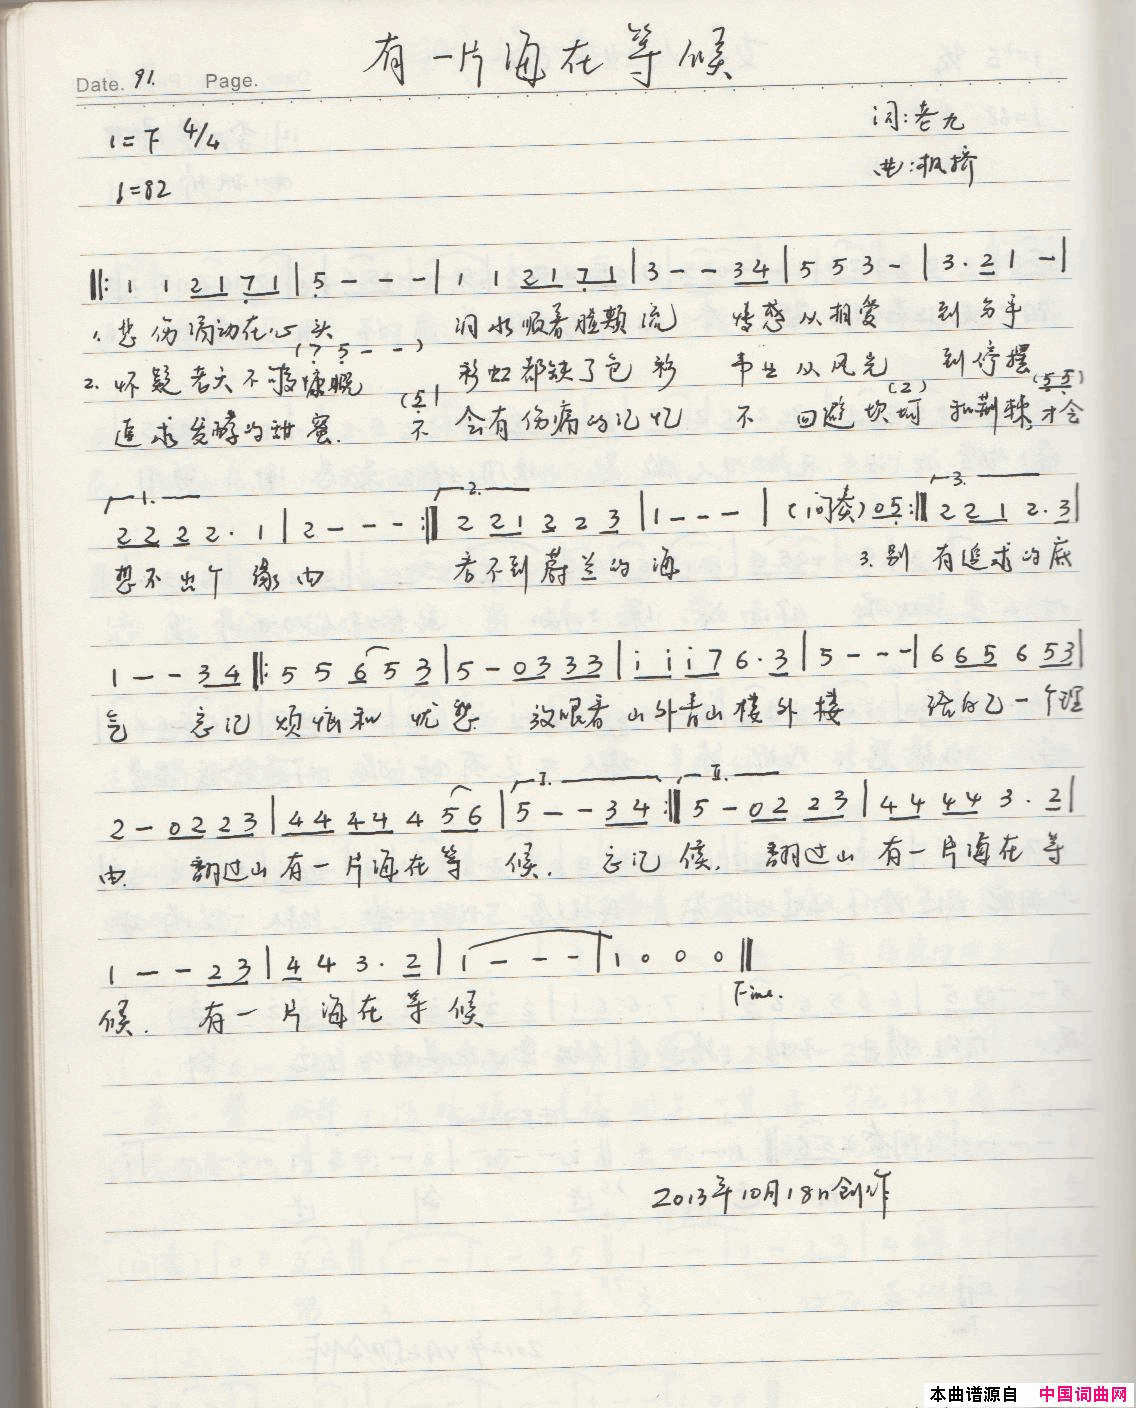 有一片海在等候
Date. 91. Page.
1=F 4/4
词:老九
♩=82
曲:枫桥
‖: 1 1 2 1 7 1 | 5 - - - | 1 1 2 1 7 1 | 3 - - 3 4 | 5 5 3 - | 3 · 2 1 - |
1. 悲伤涌动在心头 泪水顺着脸颊流 情感从相爱 到分手
(7 5 - -)
2. 怀疑老天不够慷慨 彩虹都缺了色彩 从风光 到停摆
(5 | (2) (5 5)
追求发酵的甜蜜. 不会有伤痛的记忆 不回避坎坷 和荆棘,才会
1. 2. 3.
2 2 2 2 · 1 | 2 - - - :‖ 2 2 1 2 2 3 | 1 - - - | (间奏) 0 5 :‖ 2 2 1 2 · 3 |
想不出个缘由 看不到蔚兰的海 3. 别有追求的底
1 - - 3 4 ‖: 5 5 6 5 3 | 5 - 0 3 3 3 | i i i 7 6 · 3 | 5 - - - | 6 6 5 6 5 3 |
气 忘记烦恼和忧愁 放眼看山外青山楼外楼 给自己一个理
I. II.
2 - 0 2 2 3 | 4 4 4 4 4 5 6 | 5 - - 3 4 :‖ 5 - 0 2 2 3 | 4 4 4 4 3 · 2 |
由. 翻过山有一片海在等候. 忘记候. 翻过山有一片海在等
1 - - 2 3 | 4 4 3 · 2 | 1 - - - | 1 0 0 0 ‖
Fine.
候. 有一片海在等候
2013年10月18日创作
本曲谱源自 中国词曲网